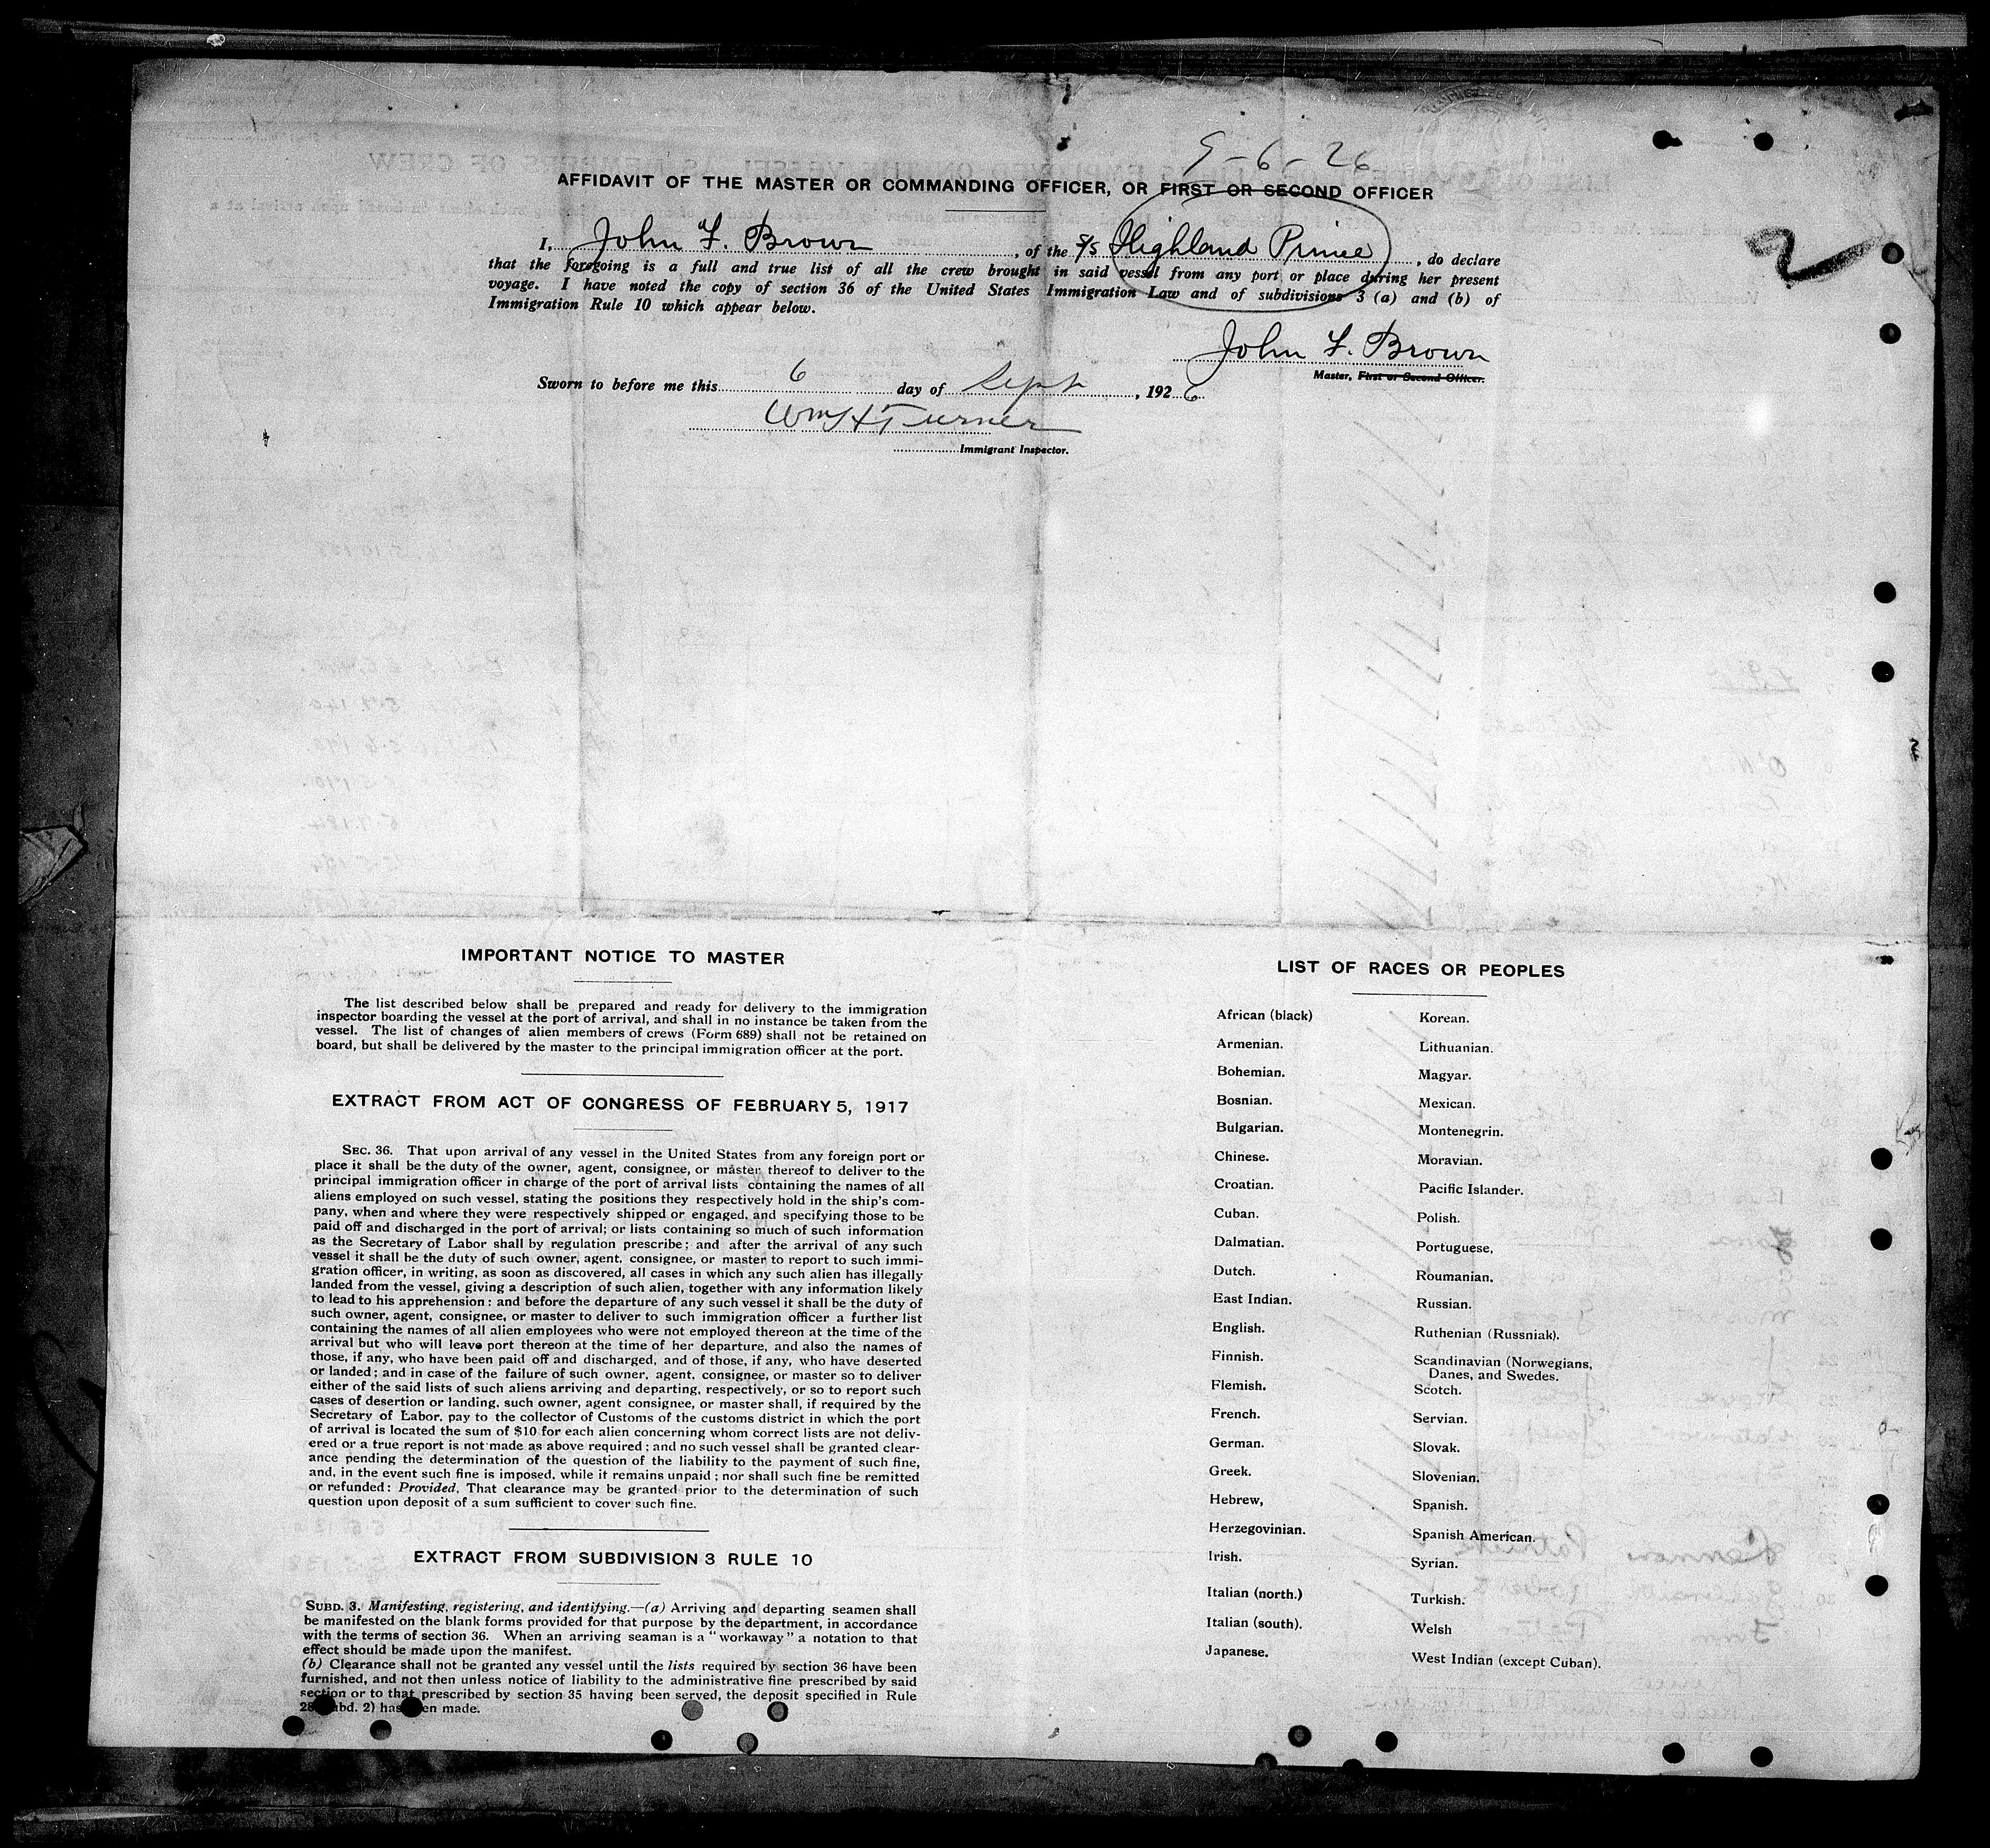 9-6-26
AFFIDAVIT OF THE MASTER OR COMMANDING OFFICER, OR FIRST OR SECOND OFFICER
I, John F. Brown, of the S/S Highland Prince, do declare
that the foregoing is a full and true list of all the crew brought in said vessel from any port or place during her present
voyage. I have noted the copy of section 36 of the United States Immigration Law and of subdivisions 3 (a) and (b) of
Immigration Rule 10 which appear below.
John F. Brown
Master, First or Second Officer.
Sworn to before me this 6 day of Sept, 1926
Wm H Turner
Immigrant Inspector.
2
IMPORTANT NOTICE TO MASTER
The list described below shall be prepared and ready for delivery to the immigration
inspector boarding the vessel at the port of arrival, and shall in no instance be taken from the
vessel. The list of changes of alien members of crews (Form 689) shall not be retained on
board, but shall be delivered by the master to the principal immigration officer at the port.
EXTRACT FROM ACT OF CONGRESS OF FEBRUARY 5, 1917
SEC. 36. That upon arrival of any vessel in the United States from any foreign port or
place it shall be the duty of the owner, agent, consignee, or master thereof to deliver to the
principal immigration officer in charge of the port of arrival lists containing the names of all
aliens employed on such vessel, stating the positions they respectively hold in the ship's com-
pany, when and where they were respectively shipped or engaged, and specifying those to be
paid off and discharged in the port of arrival; or lists containing so much of such information
as the Secretary of Labor shall by regulation prescribe; and after the arrival of any such
vessel it shall be the duty of such owner, agent, consignee, or master to report to such immi-
gration officer, in writing, as soon as discovered, all cases in which any such alien has illegally
landed from the vessel, giving a description of such alien, together with any information likely
to lead to his apprehension: and before the departure of any such vessel it shall be the duty of
such owner, agent, consignee, or master to deliver to such immigration officer a further list
containing the names of all alien employees who were not employed thereon at the time of the
arrival but who will leave port thereon at the time of her departure, and also the names of
those, if any, who have been paid off and discharged, and of those, if any, who have deserted
or landed; and in case of the failure of such owner, agent, consignee, or master so to deliver
either of the said lists of such aliens arriving and departing, respectively, or so to report such
cases of desertion or landing, such owner, agent consignee, or master shall, if required by the
Secretary of Labor, pay to the collector of Customs of the customs district in which the port
of arrival is located the sum of $10 for each alien concerning whom correct lists are not deliv-
ered or a true report is not made as above required; and no such vessel shall be granted clear-
ance pending the determination of the question of the liability to the payment of such fine,
and, in the event such fine is imposed, while it remains unpaid; nor shall such fine be remitted
or refunded: Provided, That clearance may be granted prior to the determination of such
question upon deposit of a sum sufficient to cover such fine.
EXTRACT FROM SUBDIVISION 3 RULE 10
SUBD. 3. Manifesting, registering, and identifying.—(a) Arriving and departing seamen shall
be manifested on the blank forms provided for that purpose by the department, in accordance
with the terms of section 36. When an arriving seaman is a "workaway" a notation to that
effect should be made upon the manifest.
(b) Clearance shall not be granted any vessel until the lists required by section 36 have been
furnished, and not then unless notice of liability to the administrative fine prescribed by said
section or to that prescribed by section 35 having been served, the deposit specified in Rule
made.
LIST OF RACES OR PEOPLES
African (black)
Armenian.
Bohemian.
Bosnian.
Bulgarian.
Chinese.
Croatian.
Cuban.
Dalmatian.
Dutch.
East Indian.
English.
Finnish.
Flemish.
French.
German.
Greek.
Hebrew,
Herzegovinian.
Irish.
Italian (north.)
Italian (south).
Japanese.
Korean.
Lithuanian.
Magyar.
Mexican.
Montenegrin.
Moravian.
Pacific Islander.
Polish.
Portuguese,
Roumanian.
Russian.
Ruthenian (Russniak).
Scandinavian (Norwegians,
Danes, and Swedes.
Scotch.
Servian.
Slovak.
Slovenian.
Spanish.
Spanish American.
Syrian.
Turkish.
Welsh
West Indian (except Cuban).